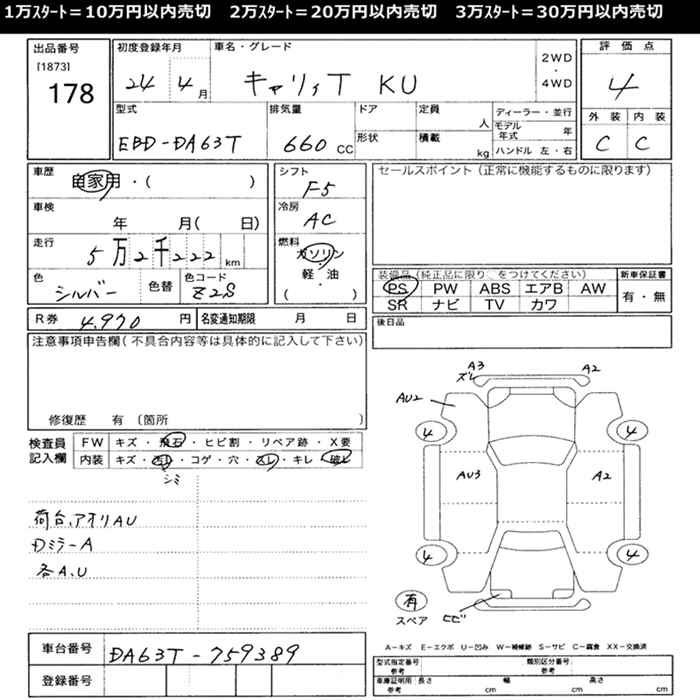 1万ｽﾀｰﾄ＝10万円以内売切　2万ｽﾀｰﾄ＝20万円以内売切　3万ｽﾀｰﾄ＝30万円以内売切
出品番号
[1873]
178
初度登録年月
24 4月
車名・グレード
キャリイT KU
2WD
・
4WD
評価点
4
型式
EBD-DA63T
排気量
660 CC
ドア
形状
定員
人
積載
kg
ディーラー・並行
モデル年式 年
ハンドル 左・右
外装 内装
C C
車歴
自家用・( )
車検
年 月( 日)
走行
5万2千222 km
色
シルバー
色替
色コード
Z2S
シフト
F5
冷房
AC
燃料
ガソリン
・
軽・油
( )
セールスポイント (正常に機能するものに限ります)
装備品 (純正品に限り○をつけてください)
PS PW ABS エアB AW
SR ナビ TV カワ
新車保証書
有・無
R券 4,970 円
名変通知期限 月 日
後日品
注意事項申告欄(不具合内容等は具体的に記入して下さい)
修復歴 有 〔箇所
検査員
記入欄
FW キズ・飛石・ヒビ割・リペア跡・X要
内装 キズ・汚レ・コゲ・穴・スレ・キレ・破レ
シミ
荷台、アオリAU
Dミラー A
各A、U
A3
ズレ
A2
AU2
4
4
AU3
A2
4
4
有
スペア
ヒビ
A－キズ E－エクボ U－凹み W－補修跡 S－サビ C－腐食 XX－交換済
車台番号 DA63T-759389
登録番号
型式指定番号
参考
類別区分番号
参考
車庫証明用
参考
長さ cm 幅 cm 高さ cm